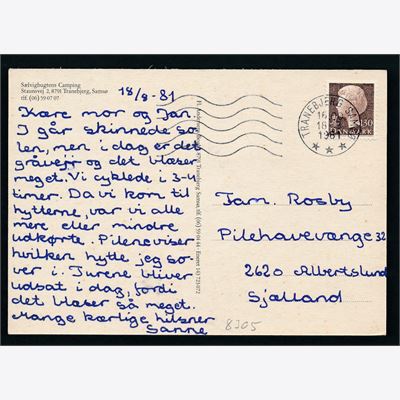 Sælvigbugtens Camping
Staunsvej 2, 8791 Tranebjerg, Samsø
tlf. (06) 59 07 07
18/8-81
Kære mor og Jan.
I går skinnede so-
len, men i dag er det
gråvejr og det blæser
meget. Vi cyklede i 3-4
timer. Da vi kom til
hytterne, var vi alle
mere eller mindre
udkørte. Pilene viser
hvilken hytte jeg so-
ver i. Turene bliver
udsat i dag, fordi
det blæser så meget.
Mange kærlige hilsner
Sanne
TRANEBJERG SAMSØ
1981
130
DANMARK
Fam. Rosby
Pilehavevænge 32
2620 Albertslund
Sjælland
8305